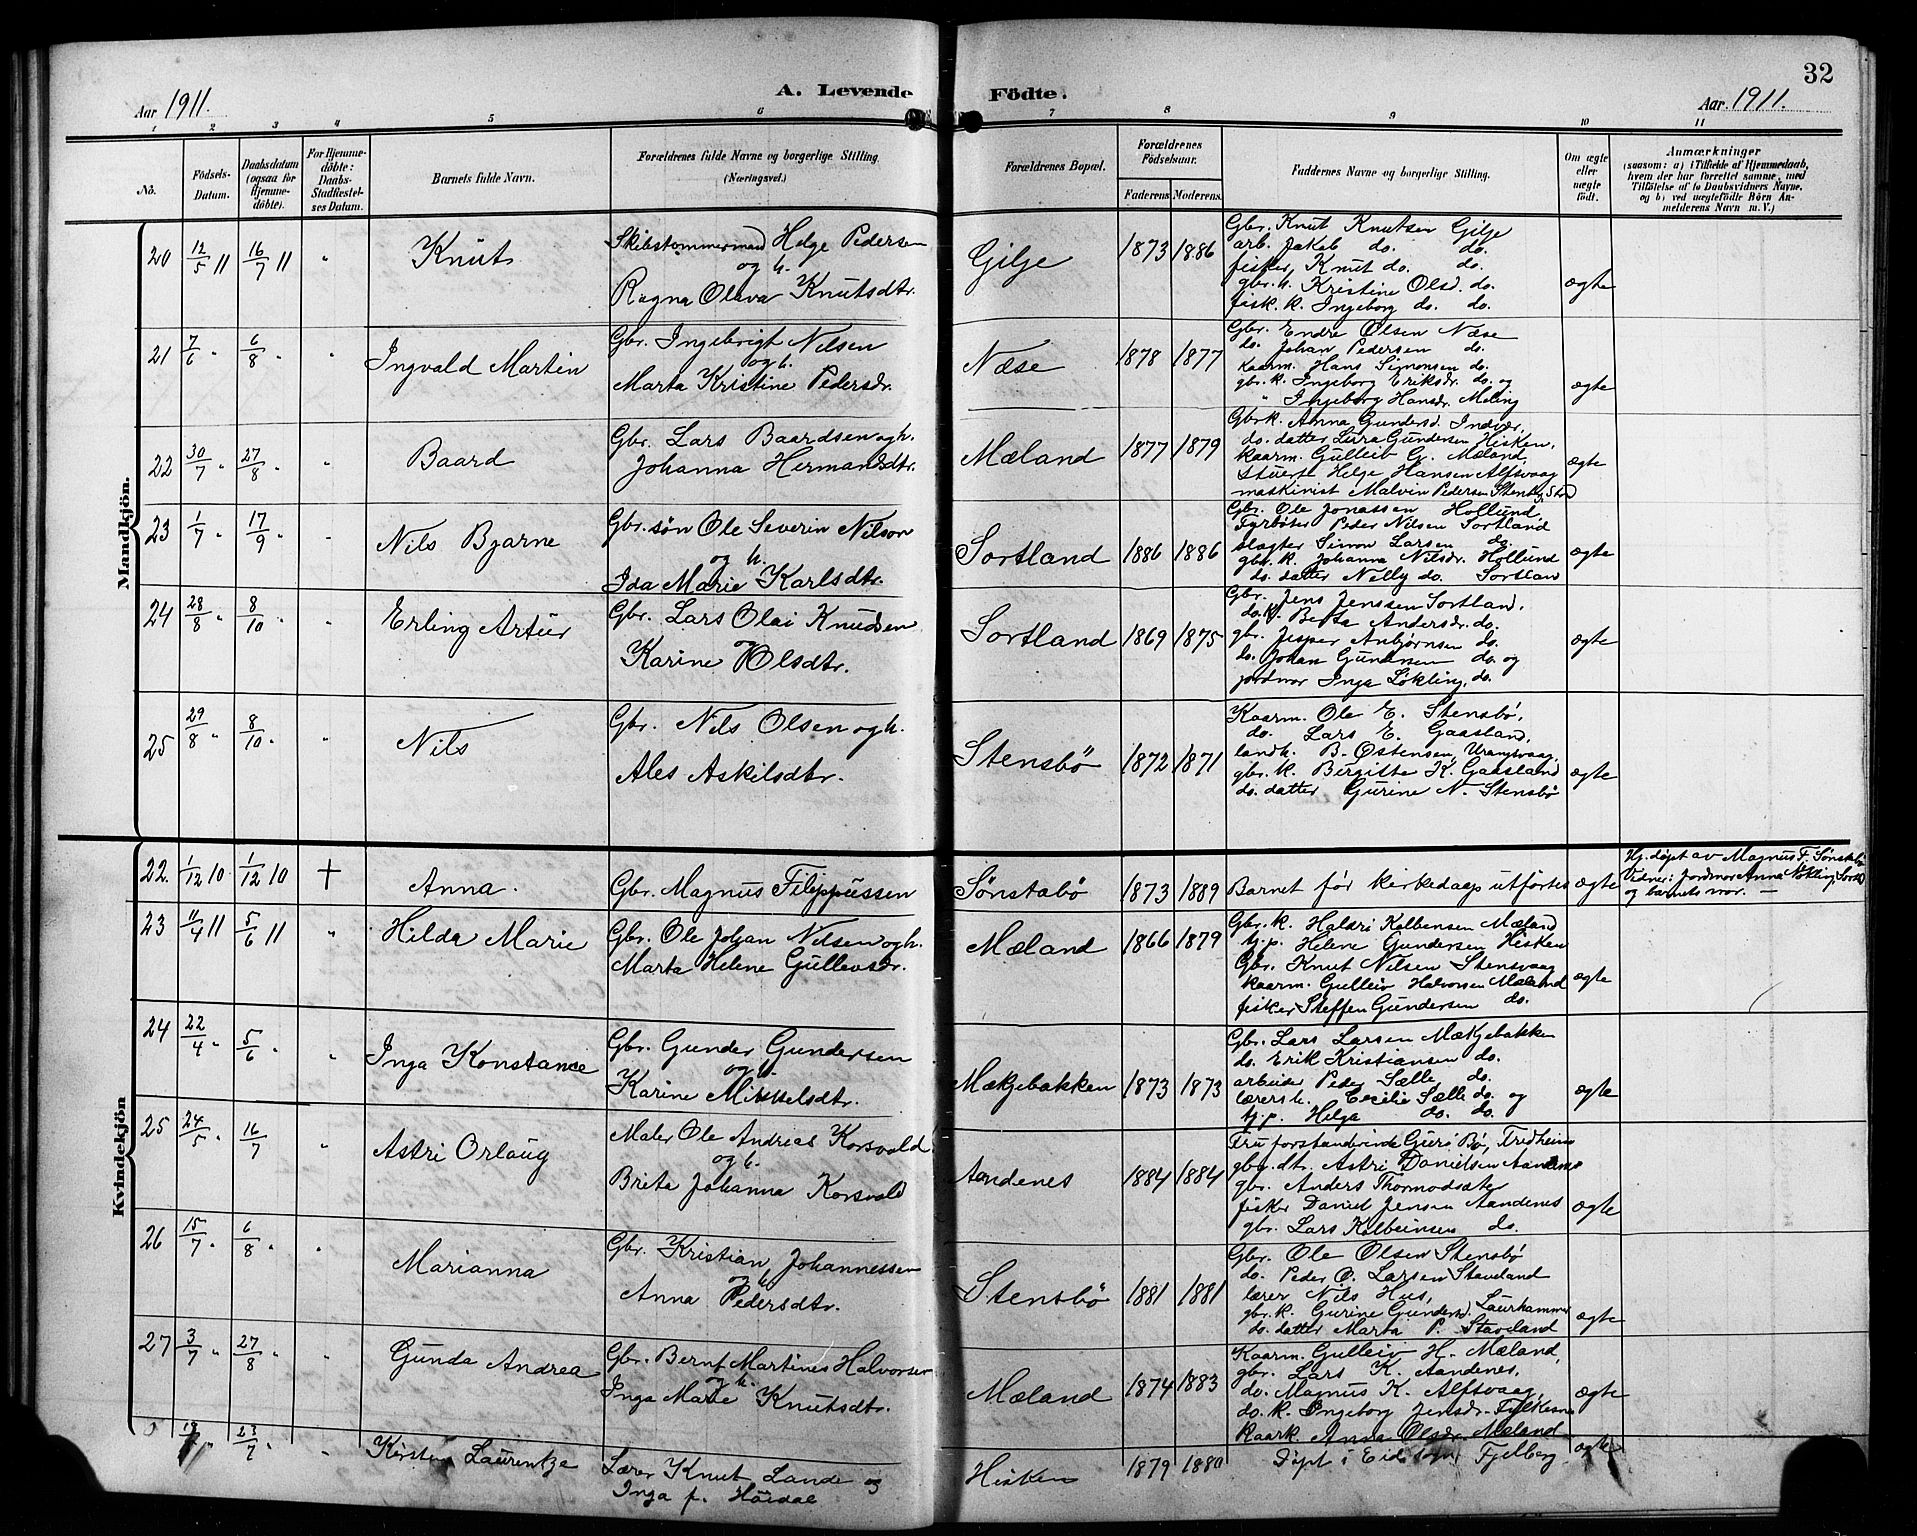 32
Aar 1911.
A. Levende Födte.
Aar. 1911.
1 2 3 4 5 6 7 8 9 10 11
No.
Födsels-Datum.
Daabsdatum (ogsaa for Hjemmedöbte).
For Hjemmedöbte: Daabs-Stadfæstelses Datum.
Barnets fulde Navn.
Forældrenes fulde Navne og borgerlige Stilling. (Næringsvei.)
Forældrenes Bopæl.
Forældrenes Födselsaar.
Faderens. Moderens.
Faddernes Navne og borgerlige Stilling.
Om ægte eller uægte födt.
Anmærkninger
(saasom: a) i Tilfælde af Hjemmedaab, hvem der har forrettet samme, med Tilföielse af to Daabsvidners Navne, og b) ved uægtefödte Börn Anmelderens Navn m. V.)
Mandkjön.
20 12/5 11 16/7 11 " Knut
Skibstømmermand Helge Pedersen
og h.
Ragna Olava Knutsdtr.
Gilje 1873 1886
Gbr. Knut Knutsen Gilje
arb. Jakob do. do.
fisker Knut do. do.
gbr. k. Kristine Olsd. do.
fisk. k. Ingeborg do. do.
ægte
21 7/6 " 6/8 " " Ingvald Martin
Gbr. Ingebrigt Nilsen
og h.
Marta Kristine Pedersdr.
Næse 1878 1877
Gbr. Endre Olsen Næse
do. Johan Pedersen do.
kaarm. Hans Simonsen do.
gbr. k. Ingeborg Eriksdr. do. og
" Ingeborg Hansdr. Meling
ægte
22 30/7 " 27/8 " " Baard
Gbr. Lars Baardsen og h.
Johanna Hermansdtr.
Mæland 1877 1879
Gbrk. Anna Gundersd.
do. datter Lina Gundersen Hisken,
kaarm. Gulleiv G. Mæland
stuert Helge Hansen Alfsvaag
maskinist Malvin Pedersen
ægte
23 1/7 " 17/9 " " Nils Bjarne
Gbr. søn Ole Severin Nilsen
og h.
Ida Marie Karlsdtr.
Sortland 1886 1886
Gbr. Ole Jonassen Hollund
Fyrbøter Peder Nilsen Sortland
slagter Simon Larsen do.
gbr. k. Johanna Nilsdr. Hollund
do. datter Nelly do. Sortland
ægte
24 28/8 " 8/10 " " Erling Artur
Gbr. Lars Olai Knudsen
og
Karine Olsdtr.
Sortland 1869 1875
Gbr. Jens Jenssen Sortland,
do. k. Berta Andersdr. do.
gbr. Jesper Anbjørnsen do.
do. Johan Gundersen do. og
jordmor Inga Løkling, do.
ægte
25 29/8 " 8/10 " " Nils
Gbr. Nils Olsen og h.
Ales Askilsdtr.
Stensbö 1872 1871
Kaarm. Ole E. Stensbö,
do. Lars E. Gaasland,
landh. B. Østensen, Urangsvaag,
gbr. k. Birgitte K. Gaasland
do. datter Gurine N. Stensbö
ægte
Kvindekjön
22. 1/12 10 1/12 10 + Anna.
Gbr. Magnus Filippussen
Sønstabö 1873 1889
Barnet før kirkedaap utførtes
ægte
Hj. døpt av Magnus F. Sønstabö
Vidner: Jordmor Anna
og barnets mor. —
23 11/4 11 5/6 11 " Hilda Marie
Gbr. Ole Johan Nilsen og h.
Marta Helene Gullevsdr.
Mæland 1866 1879
Gbr. k. Haldri Kolbensen Mæland
tj. p. Helene Gundersen Hisken
Gbr. Knut Nilsen Stensvaag
kaarm. Gulleiv Halvorsen Mæland
fisker Steffen Gundersen do.
ægte
24 22/4 " 5/6 " " Inga Konstance
Gbr. Gunder Gundersen
og h.
Karine Mikkelsdtr.
Mækjebakken 1873 1873
Gbr. Lars Larsen Mækjebakken
do. Erik Kristiansen do.
arbeider Peder Sælle do.
lærersk. Cecilie Sælle do. og
tj. p. Helga do. do.
ægte
25 24/5 " 16/7 " Astri Orlaug
Maler Ole Andreas Korsvold
og h.
Brita Johanna Korsvold
Aandenes 1884 1884
Fru forstanderinde Guri Bö, Fredheim
gbr. dtr. Astri Danielsen Aandenes
gbr. Anders Thormodsæter
fisker Daniel Jensen Aandenes
gbr. Lars Kolbeinsen do.
ægte
26 15/7 " 6/8 " " Marianna
Gbr. Kristian Johannessen
og h.
Anna Pedersdtr.
Stensbö 1881 1881
Gbr. Ole Olsen Stensbö
do. Peder O. Larsen Staveland
lærer Nils Hus,
gbr. k. Gurine Gundersd. Laurhammer
do. datter Marta P. Staveland
ægte
27 3/7 " 27/8 " " Gunda Andrea
Gbr. Bernt Martines Halvorsen
og h.
Inga Marie Knutsdtr.
Mæland 1874 1883
Kaarm. Gulleiv H. Mæland,
gbr. Lars K. Aandenes,
do. Magnus K. Alfsvaag,
do. k. Ingeborg Jensdr. Fylkesnes
kaark. Anna Olsdr. Mæland
ægte
23/7 " " Kirsten Laurentze
Lærer Knut Lande og
Inga f. Höidal
Hisken 1879 1880
Døpt i Eid Fjelberg
ægte